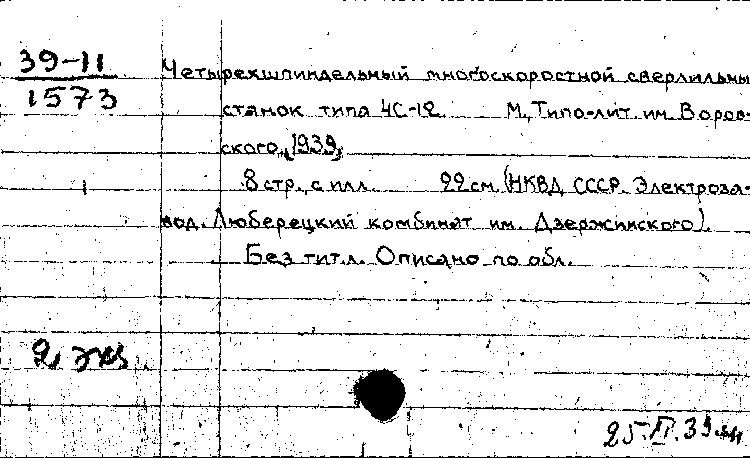 39-11
1573
Четырехшпиндельный многоскоростной сверлильны
станок типа 4С-12. М., Типо-лит. им. Воров-
ского, 1939.
8 стр., с илл. 22 см. (НКВД СССР. Электроза-
вод. Люберецкий комбинат им. Дзержинского).
Без тит. л. Описано по обл.
2 экз
25.II.39